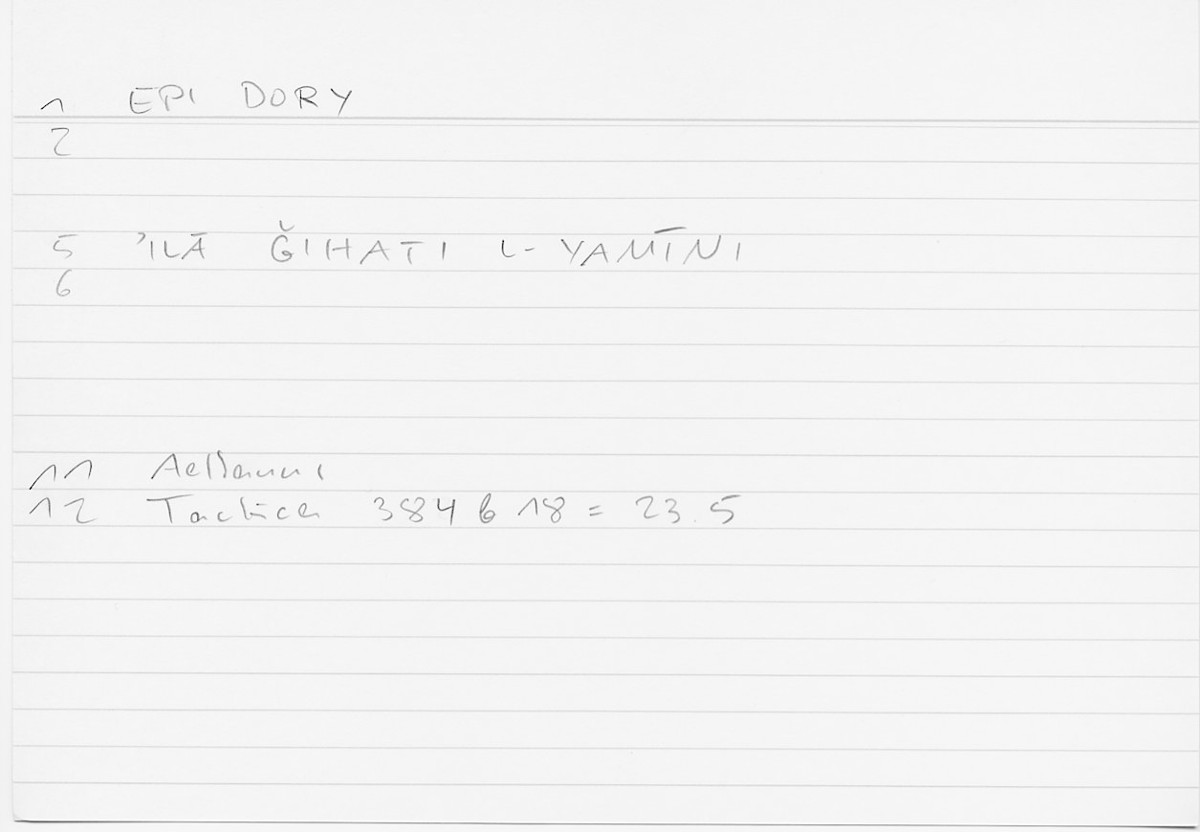 1 EPI DORY
2
5 ʾILĀ ǦIHATI L-YAMĪNI
6
11 Aeliani
12 Tactica 384 b 18 = 23.5